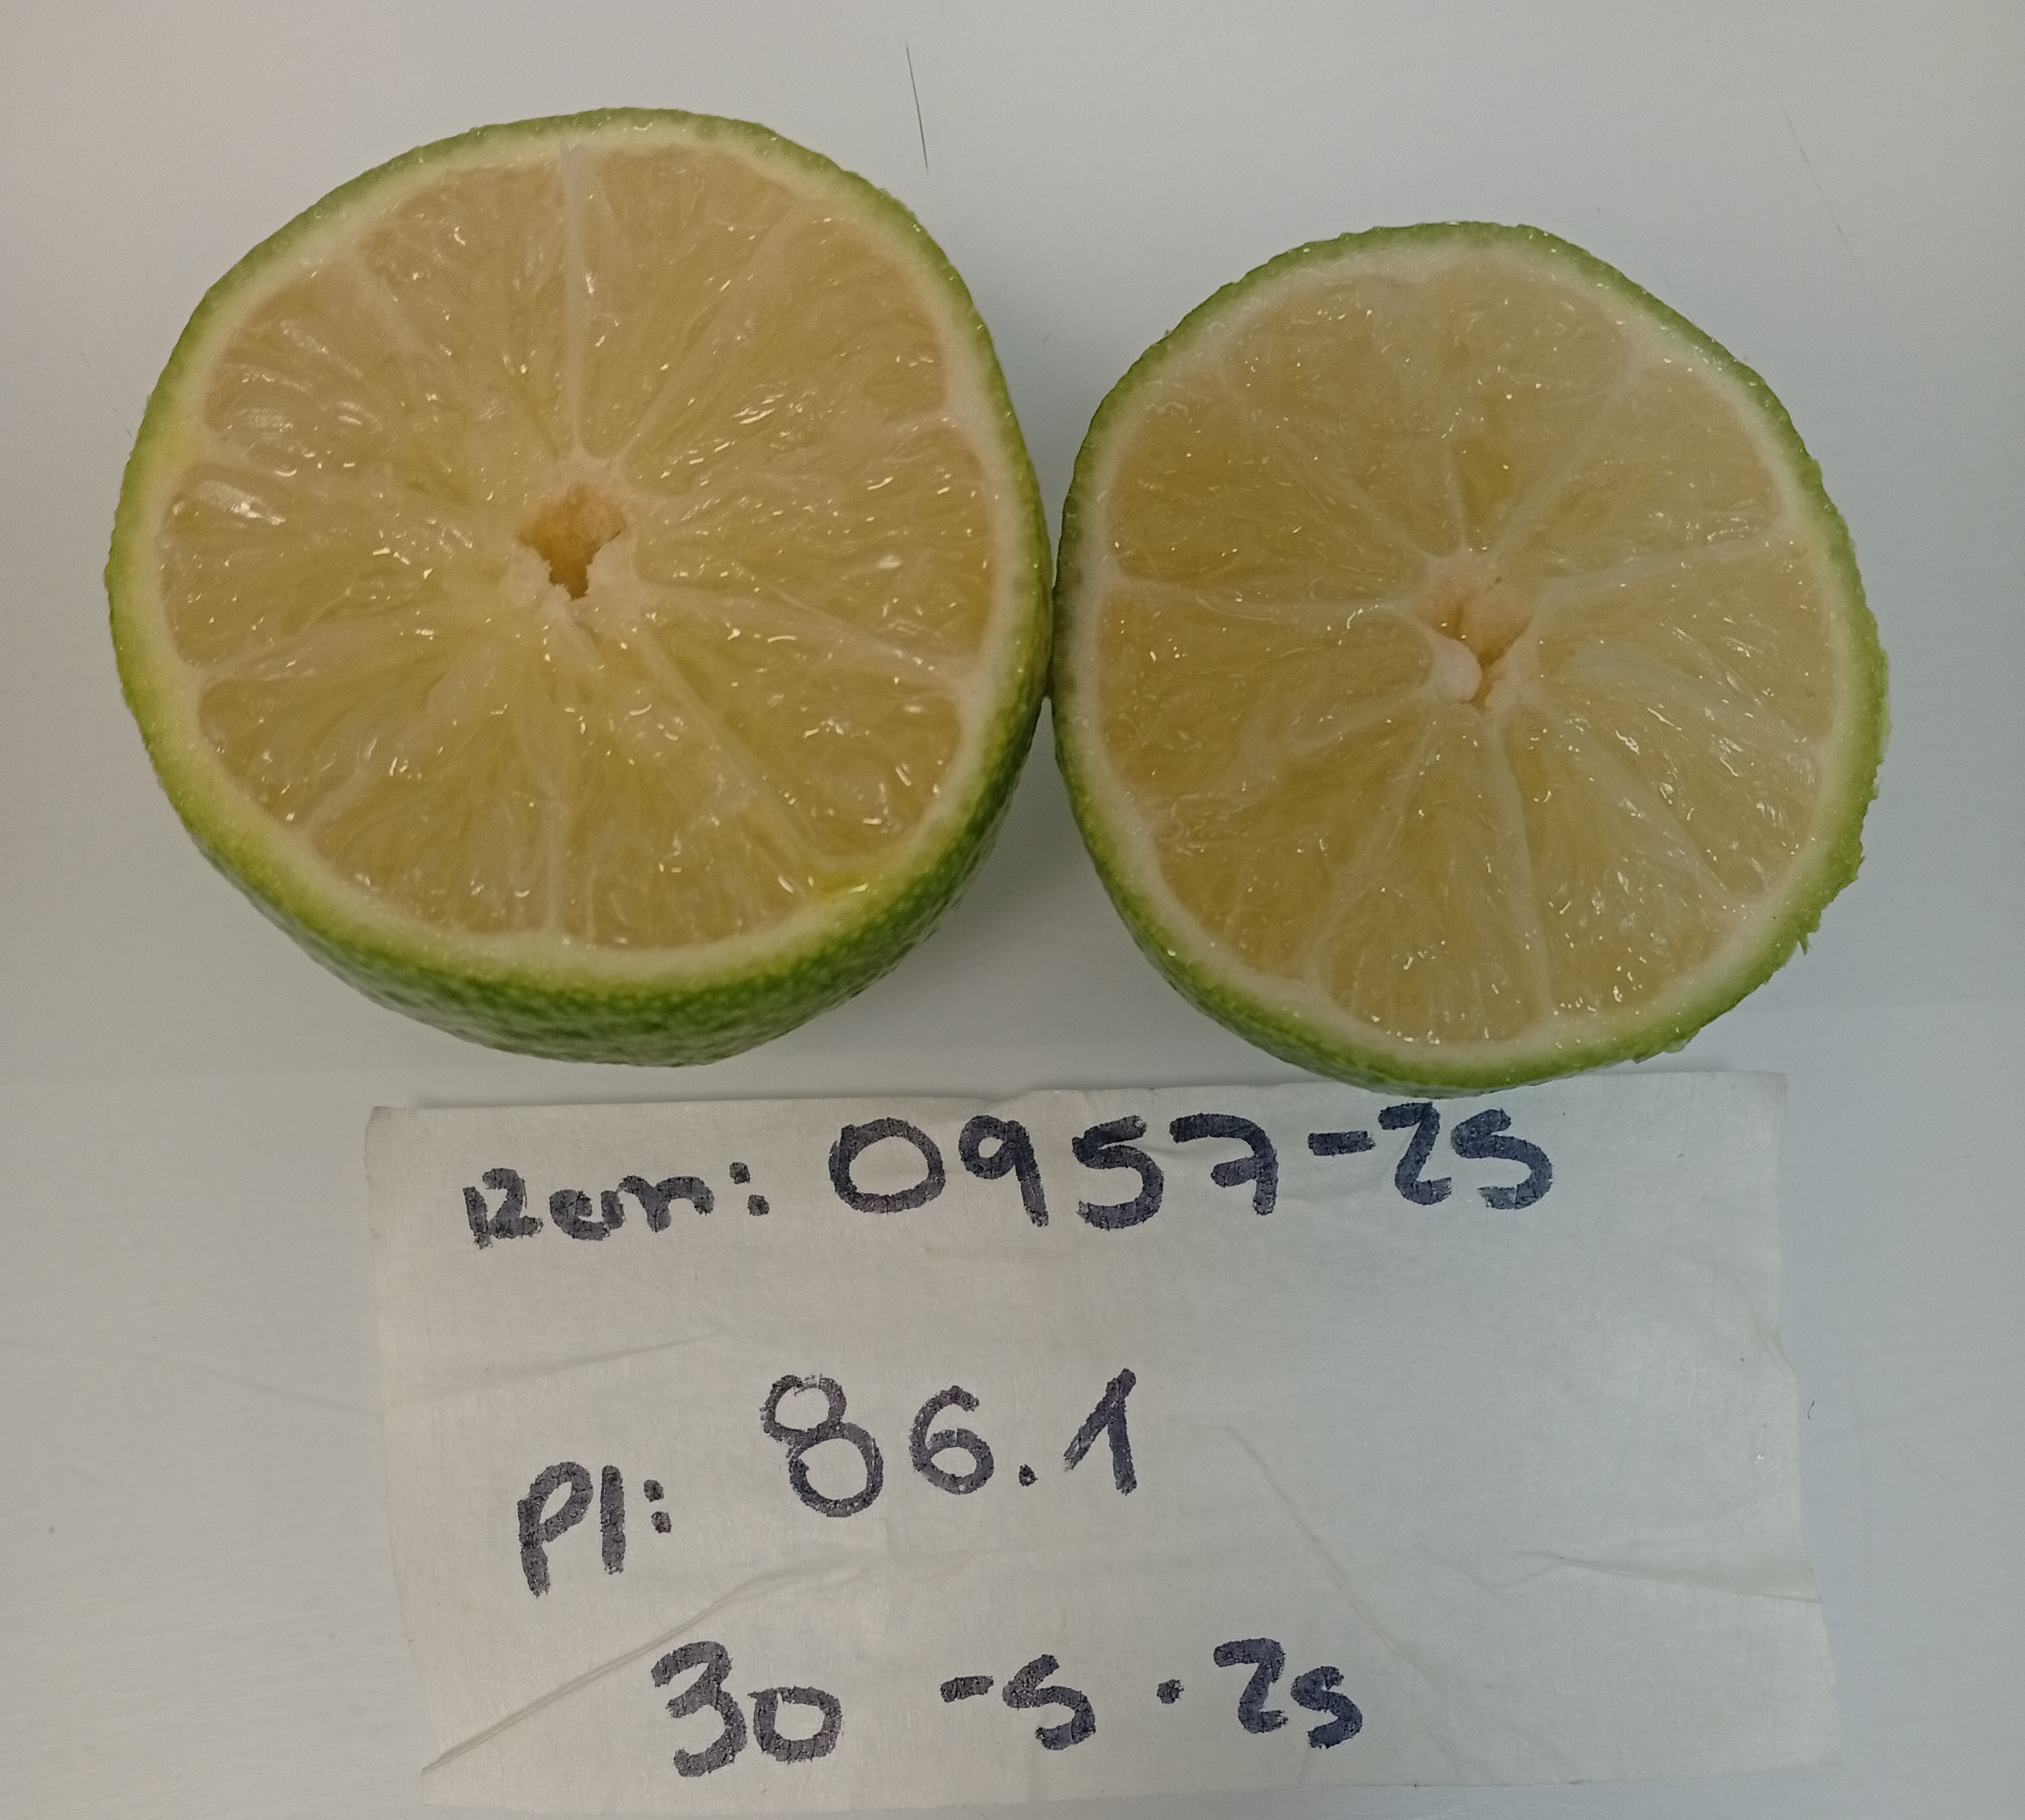 Rem: 0957-25
Pl: 86.1
30-5.25